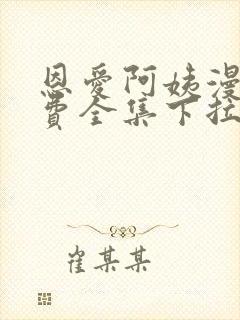 恩愛阿姨漫
費全集下拉
崔某某